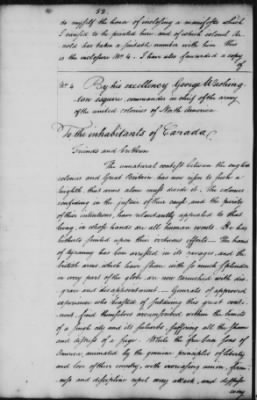 52.
do myself the honor of inclosing a manifesto which
I caused to be printed here and of which colonel Ar-
nold has taken a suitable number with him this
is the inclosure No. 4. I have also forwarded a copy
of
No. 4 By his excellency George Washing-
ton esquire, commander in chief of the army
of the united colonies of North America
To the inhabitants of Canada
Friends and brethren
The unnatural contest between the english
colonies and Great Britain has now risen to such a
heighth that arms alone must decide it. The colonies
confiding in the justice of their cause and the purity
of their intentions, have reluctantly appealed to that
being, in whose hands are all human events. He has
hitherto smiled upon their virtuous efforts— The hand
of tyranny has been arrested in its ravages, and the
british arms which have shone with so much splendor
in every part of the globe are now tarnished with dis-
grace and disappointment— Generals of approved
experience who boasted of subduing this great conti-
nent, find themselves circumscribed within the limits
of a single city and its suburbs, suffering all the shame
and distress of a siege. While the free born sons of
America, animated by the genuine principles of liberty
and love of their country, with increasing union, firm-
ness and discipline repel every attack, and despise
every